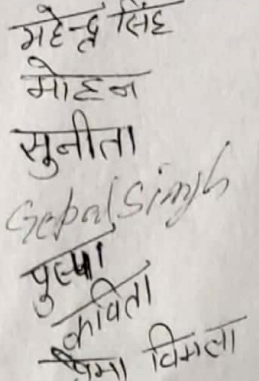 महेन्द्र सिंह
मोहन
सुनीता
Gopal Singh
पुष्पा
कविता
प्रेमा विमला